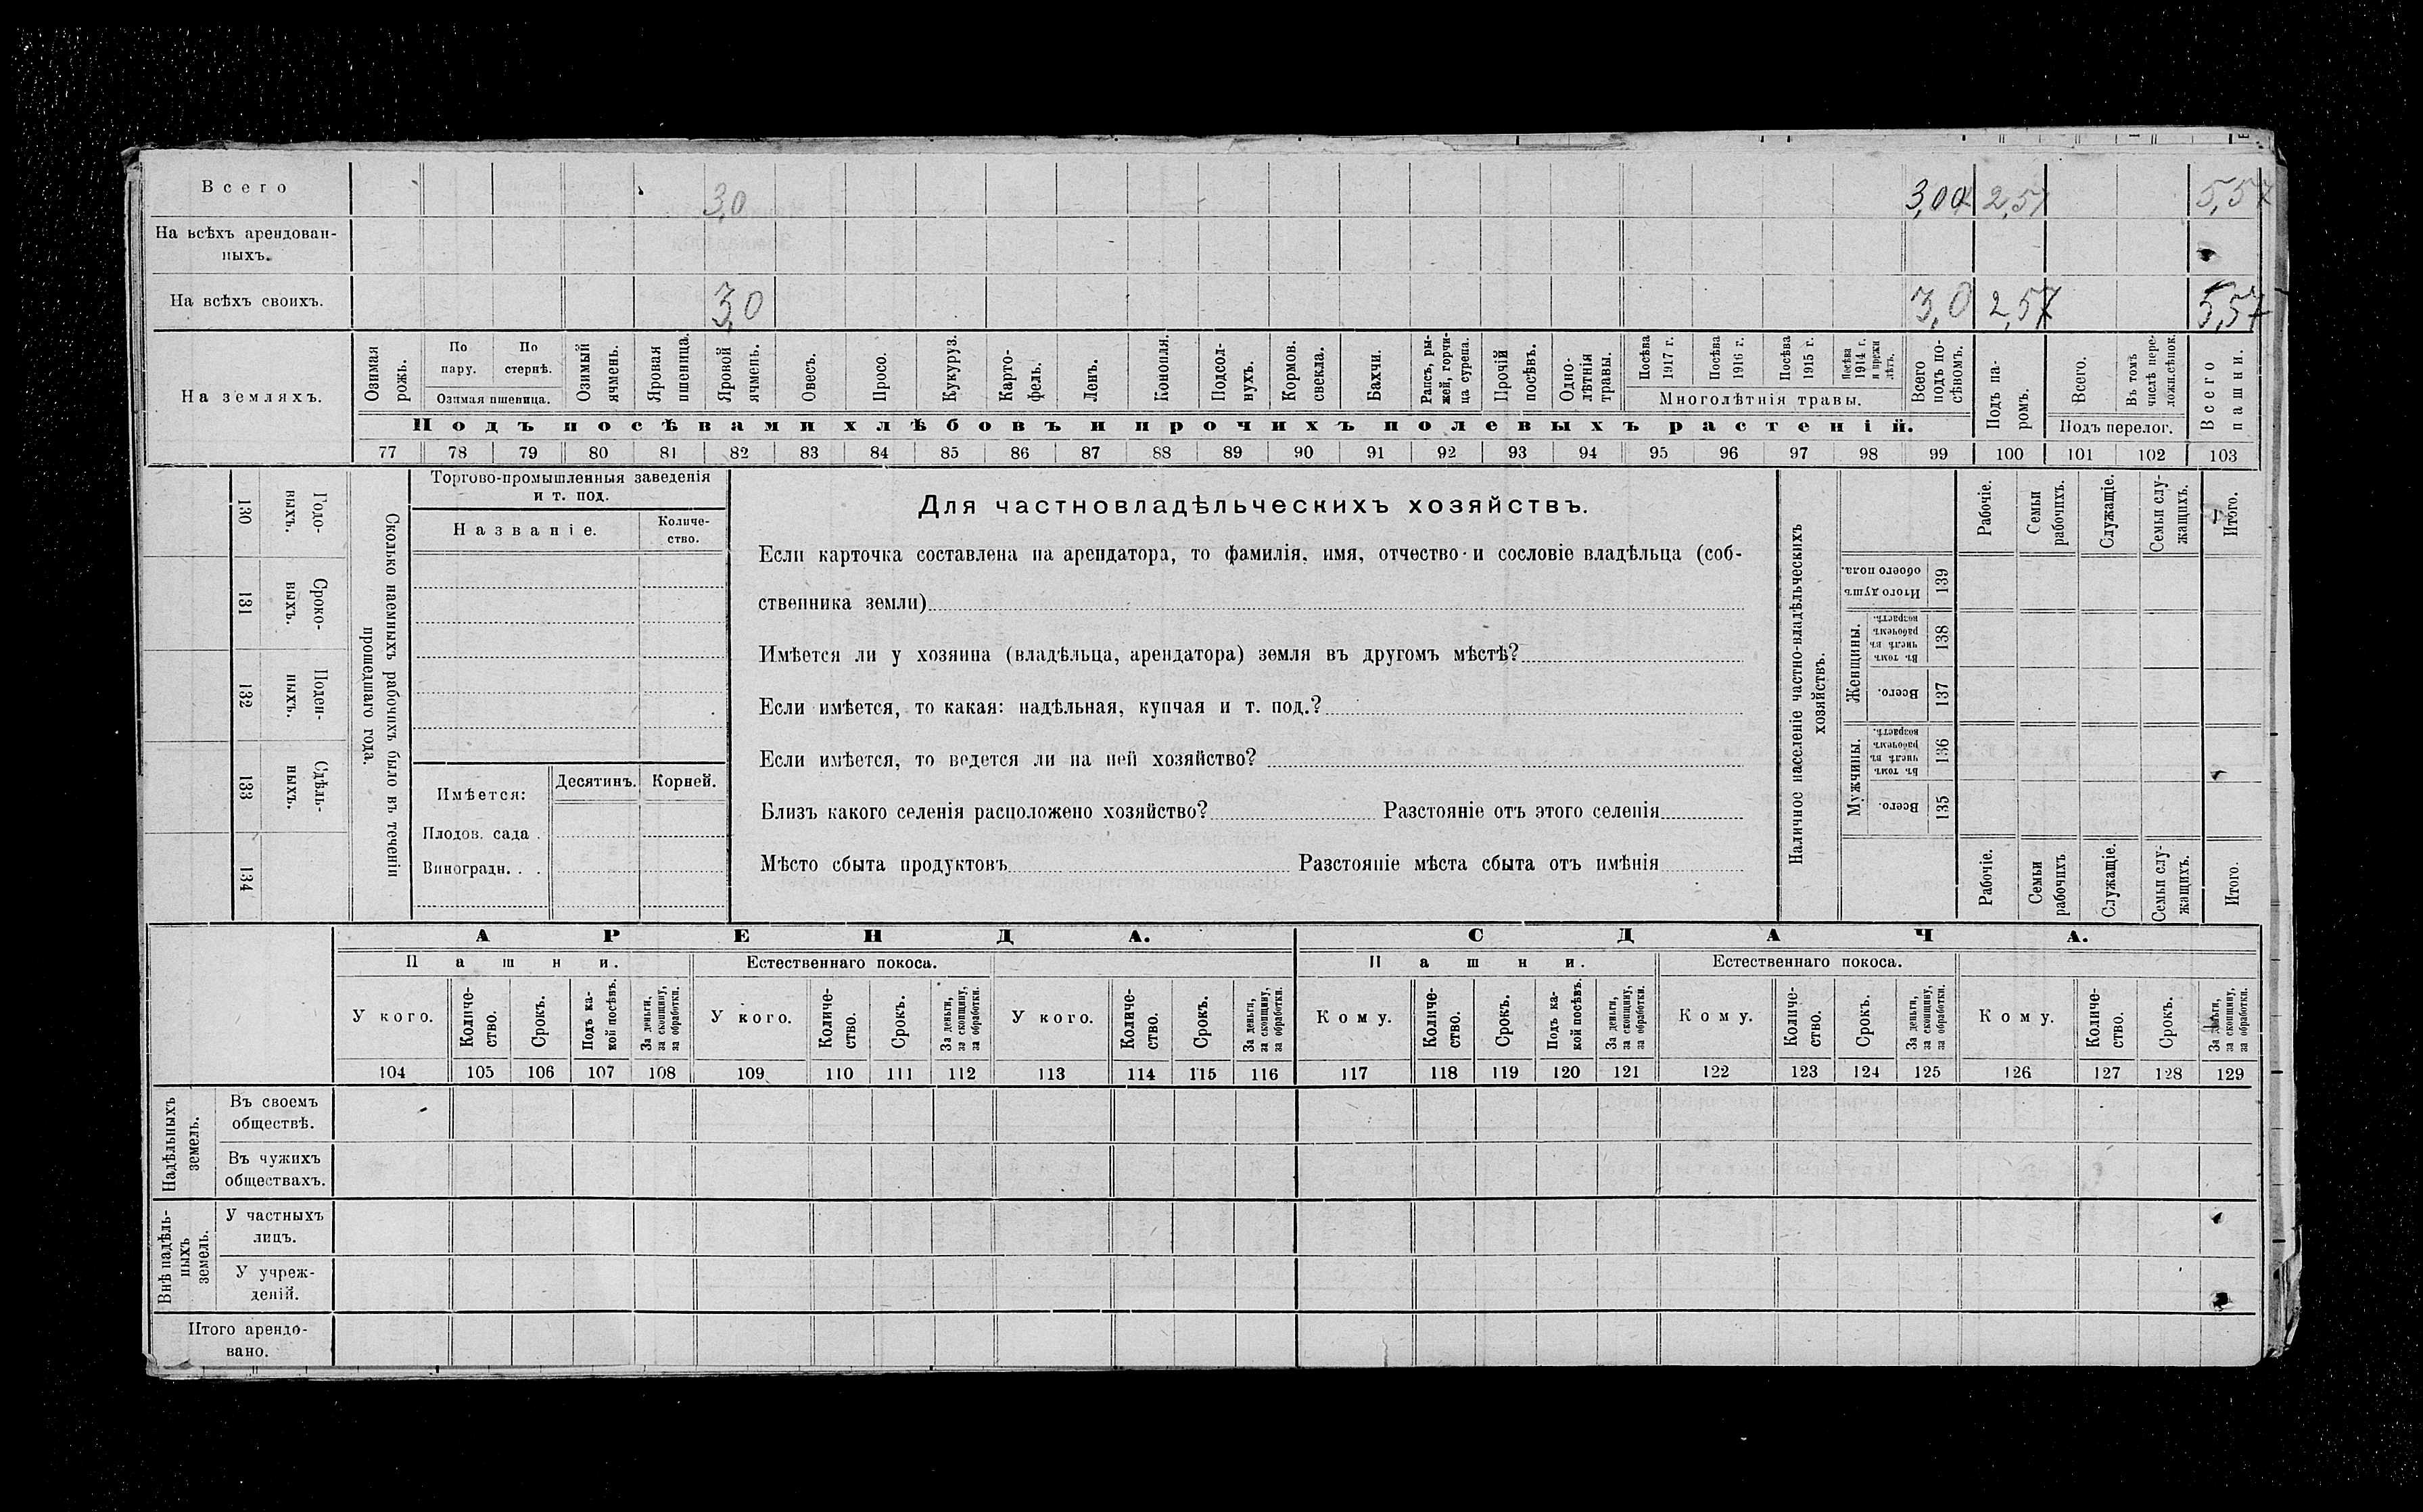 Всего 3,0 3,00 2,57 5,57
На всѣхъ арендован-
ныхъ.
На всѣхъ своихъ. 3,0 3,0 2,57 5,57
На земляхъ.
Озимая рожь.
По пару.
По стернѣ.
Озимая пшеница.
Озимый ячмень.
Яровая пшеница.
Яровой ячмень.
Овесъ.
Просо.
Кукуруз.
Карто-
фель.
Ленъ.
Конопля.
Подсол-
нухъ.
Кормов. свекла.
Бахчи.
Рапсъ, ры-
жей, горчи-
ца сурепа.
Прочій посѣвъ.
Одно-
лѣтнія травы.
Посѣва 1917 г.
Посѣва 1916 г.
Посѣва 1915 г.
Посѣва 1914 г. и прежн лѣтъ.
Многолѣтнія травы.
Всего подъ по-
сѣвомъ.
Подъ па-
ромъ.
Всего.
Въ томъ числѣ пере-
ложн.сѣнок.
Подъ перелог.
Всего пашни.
Подъ посѣвами хлѣбовъ и прочихъ полевыхъ растеній.
77 78 79 80 81 82 83 84 85 86 87 88 89 90 91 92 93 94 95 96 97 98 99 100 101 102 103
130 Годо-
выхъ.
131 Сроко-
выхъ.
132 Поден-
ныхъ.
133 Сдѣль-
ныхъ.
134
Сколько наемныхъ рабочихъ было въ теченіи
прошедшаго года.
Торгово-промышленныя заведенія
и т. под.
Названіе.
Количе-
ство.
Имѣется: Десятинъ. Корней.
Плодов. сада .
Виноградн. . .
Для частновладѣльческихъ хозяйствъ.
Если карточка составлена на арендатора, то фамилія, имя, отчество и сословіе владѣльца (соб-
ственника земли)
Имѣется ли у хозяина (владѣльца, арендатора) земля въ другомъ мѣстѣ?
Если имѣется, то какая: надѣльная, купчая и т. под.?
Если имѣется, то ведется ли на ней хозяйство?
Близъ какого селенія расположено хозяйство? Разстояніе отъ этого селенія
Мѣсто сбыта продуктовъ Разстояніе мѣста сбыта отъ имѣнія
Наличное населеніе частно-владѣльческихъ
хозяйствъ.
Рабочіе.
Семьи рабочихъ.
Служащіе.
Семьи слу-
жащихъ.
Итого.
Итого душъ обоего пола. 139
Женщины.
Въ томъ числѣ въ рабочемъ возрастѣ. 138
Всего. 137
Мужчины.
Въ томъ числѣ въ рабочемъ возрастѣ. 136
Всего. 135
Рабочіе.
Семьи рабочихъ
Служащіе.
Семьи слу-
жащихъ.
Итого.
АРЕНДА. СДАЧА.
Пашни. Естественнаго покоса. Пашни. Естественнаго покоса.
У кого.
Количе-
ство.
Срокъ.
Подъ ка-
кой посѣвъ.
За деньги,
за скопщину,
за обработки.
У кого.
Количе-
ство.
Срокъ.
За деньги,
за скопщину,
за обработки.
У кого.
Количе-
ство.
Срокъ.
За деньги,
за скопщину,
за обработки.
Кому.
Количе-
ство.
Срокъ.
Подъ ка-
кой посѣвъ.
За деньги,
за скопщину,
за обработки.
Кому.
Количе-
ство.
Срокъ.
За деньги,
за скопщину,
за обработки.
Кому.
Количе-
ство.
Срокъ.
За деньги,
за скопщину,
за обработки.
104 105 106 107 108 109 110 111 112 113 114 115 116 117 118 119 120 121 122 123 124 125 126 127 128 129
Надѣльныхъ
земель.
Въ своемъ
обществѣ.
Въ чужихъ
обществахъ.
Внѣ надѣль-
ныхъ
земель.
У частныхъ
лицъ.
У учреж-
деній.
Итого арендо-
вано.